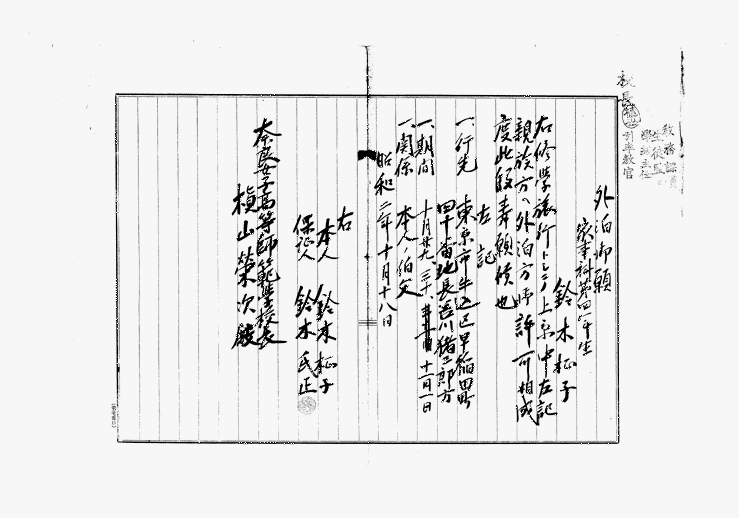 外泊御願
家事科第四学年生
鈴木柾子
右修学旅行トシテ上京中左記
親族方ヘ外泊方御許可相成
度此段奉願候也
左記
一、行先 東京市牛込区早稲田町
四十一番地長谷川猪三郎方
一、期間 十月廿九、三十、 十一月一日
一、関係 本人ノ伯父
昭和二年十月十八日
右
本人 鈴木柾子
保証人 鈴木氏正
奈良女子高等師範学校長
槙山栄次殿
校長
教務課
生徒監
学科主任
引率教官